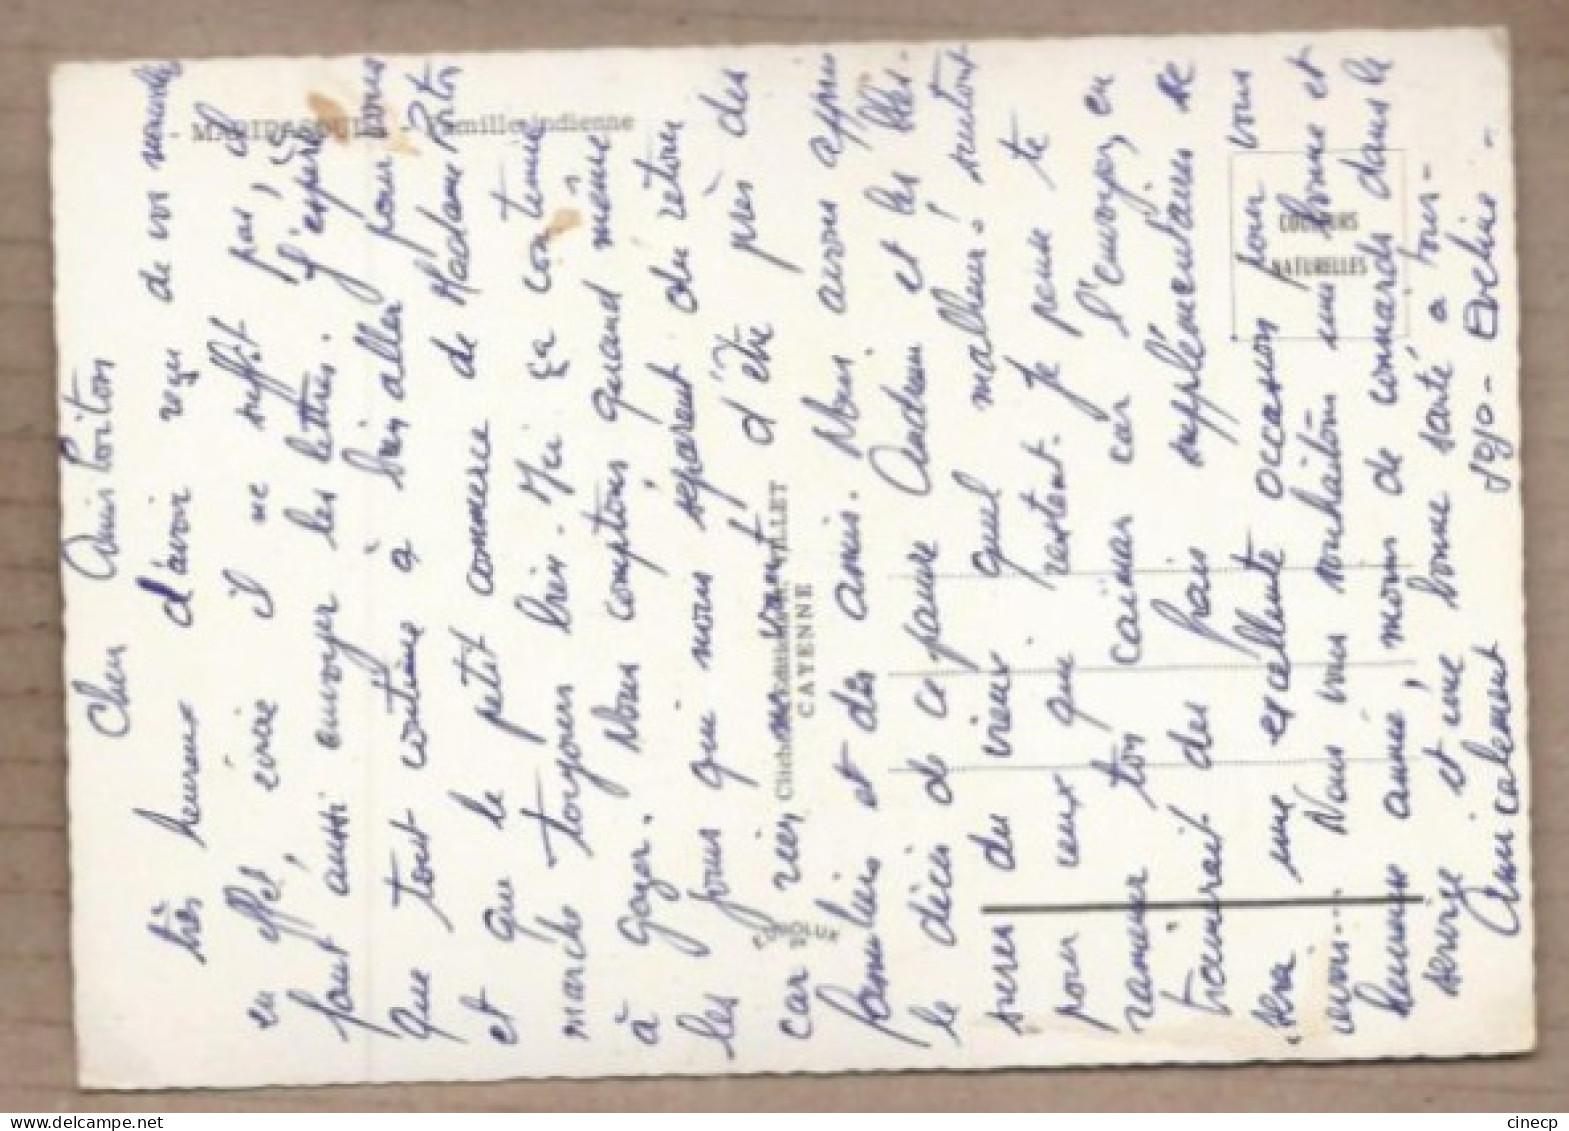 Cher Amis Poiton
très heureux d'avoir reçu de vos nouvelles
en effet, écrire il ne suffit pas, il
faut aussi envoyer les lettres. J'espère
que tout continue à bien aller pour vous
et que le petit commerce de Madame Poiton
marche toujours bien. Ici ça continue
à gazer. Nous comptons quand même
les jours qui nous séparent du retour
car rien ne vaut d'être près des
familiers et des amis. Nous avons appris
le décès de ce pauvre Andreau et les bles-
sures des vieux quel malheur! surtout
pour ceux que restent. Je pense te
ramener ton caïman car l'envoyer, en
traînerait des frais supplémentaires se
sera une excellente occasion pour vous
revoir... Nous vous souhaitons une bonne et
heureuse année, moins de connards dans le
service et une bonne santé à tous-
Amicalement Jojo - Eveline -
- MARIPASOULA - Famille indienne
COULEURS
NATURELLES
CAYENNE